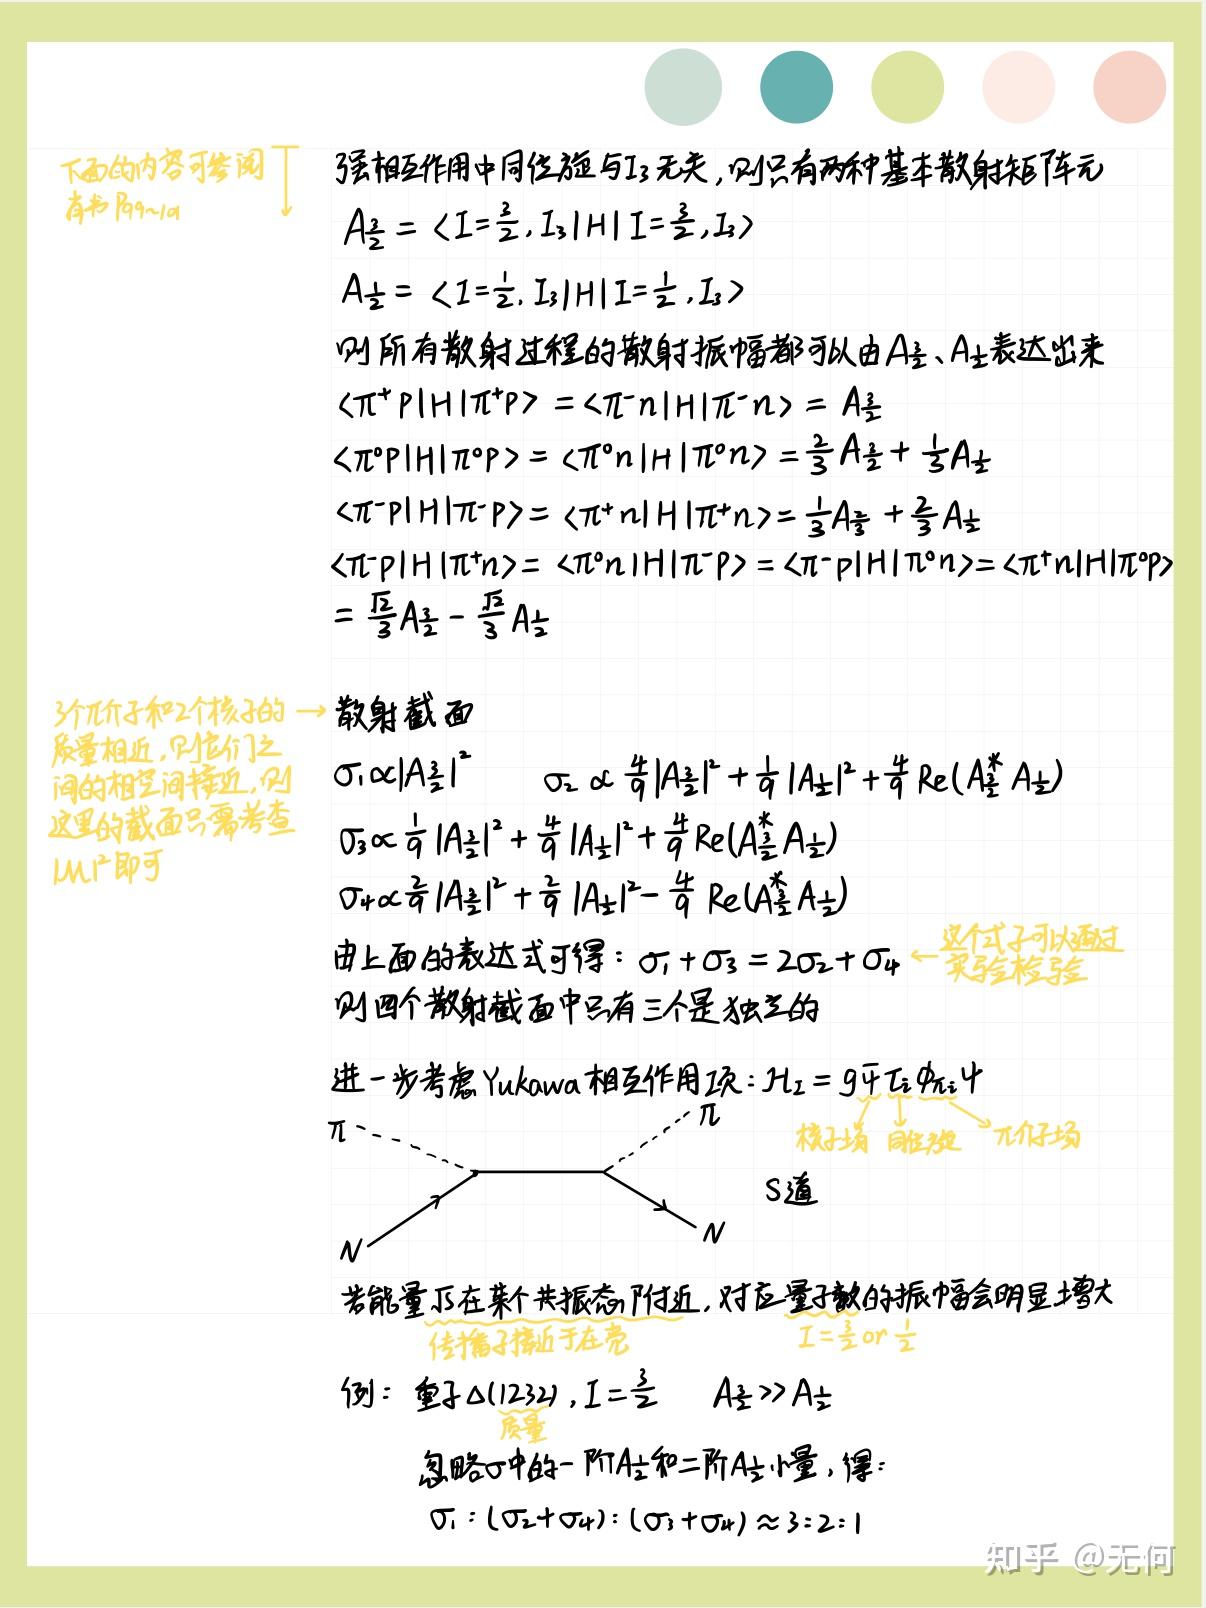 下面的内容可参阅
肖书P99~101
强相互作用中同位旋与I₃无关,则只有两种基本散射矩阵元
A_{3/2} = <I=3/2, I₃|H|I=3/2, I₃>
A_{1/2} = <I=1/2, I₃|H|I=1/2, I₃>
则所有散射过程的散射振幅都可以由A_{3/2}、A_{1/2}表达出来
<π⁺p|H|π⁺p> = <π⁻n|H|π⁻n> = A_{3/2}
<π⁰p|H|π⁰p> = <π⁰n|H|π⁰n> = 2/3 A_{3/2} + 1/3 A_{1/2}
<π⁻p|H|π⁻p> = <π⁺n|H|π⁺n> = 1/3 A_{3/2} + 2/3 A_{1/2}
<π⁻p|H|π⁺n> = <π⁰n|H|π⁻p> = <π⁻p|H|π⁰n> = <π⁺n|H|π⁰p>
= √2/3 A_{3/2} - √2/3 A_{1/2}
3个π介子和2个核子的
质量相近,则它们之
间的相空间接近,则
这里的截面只需考查
|M|²即可
→ 散射截面
σ₁∝|A_{3/2}|² σ₂ ∝ 4/9 |A_{3/2}|² + 1/9 |A_{1/2}|² + 4/9 Re(A*_{3/2} A_{1/2})
σ₃∝ 1/9 |A_{3/2}|² + 4/9 |A_{1/2}|² + 4/9 Re(A*_{3/2} A_{1/2})
σ₄∝ 2/9 |A_{3/2}|² + 2/9 |A_{1/2}|² - 4/9 Re(A*_{3/2} A_{1/2})
由上面的表达式可得: σ₁ + σ₃ = 2σ₂ + σ₄
← 这个式子可以通过
实验检验
则四个散射截面中只有三个是独立的
进一步考虑Yukawa相互作用项: ℋ_I = gΨ̄τᵢφ_{πᵢ}Ψ
核子场 同位旋 π介子场
π π
S道
N N
若能量√s在某个共振态附近,对应量子数的振幅会明显增大
传播子接近于在壳 I=3/2 or 1/2
例: 重子Δ(1232), I=3/2 A_{3/2} >> A_{1/2}
质量
忽略σ中的一阶A_{1/2}和二阶A_{1/2}小量,得:
σ₁:(σ₂+σ₄):(σ₃+σ₄) ≈ 3:2:1
知乎 @无何